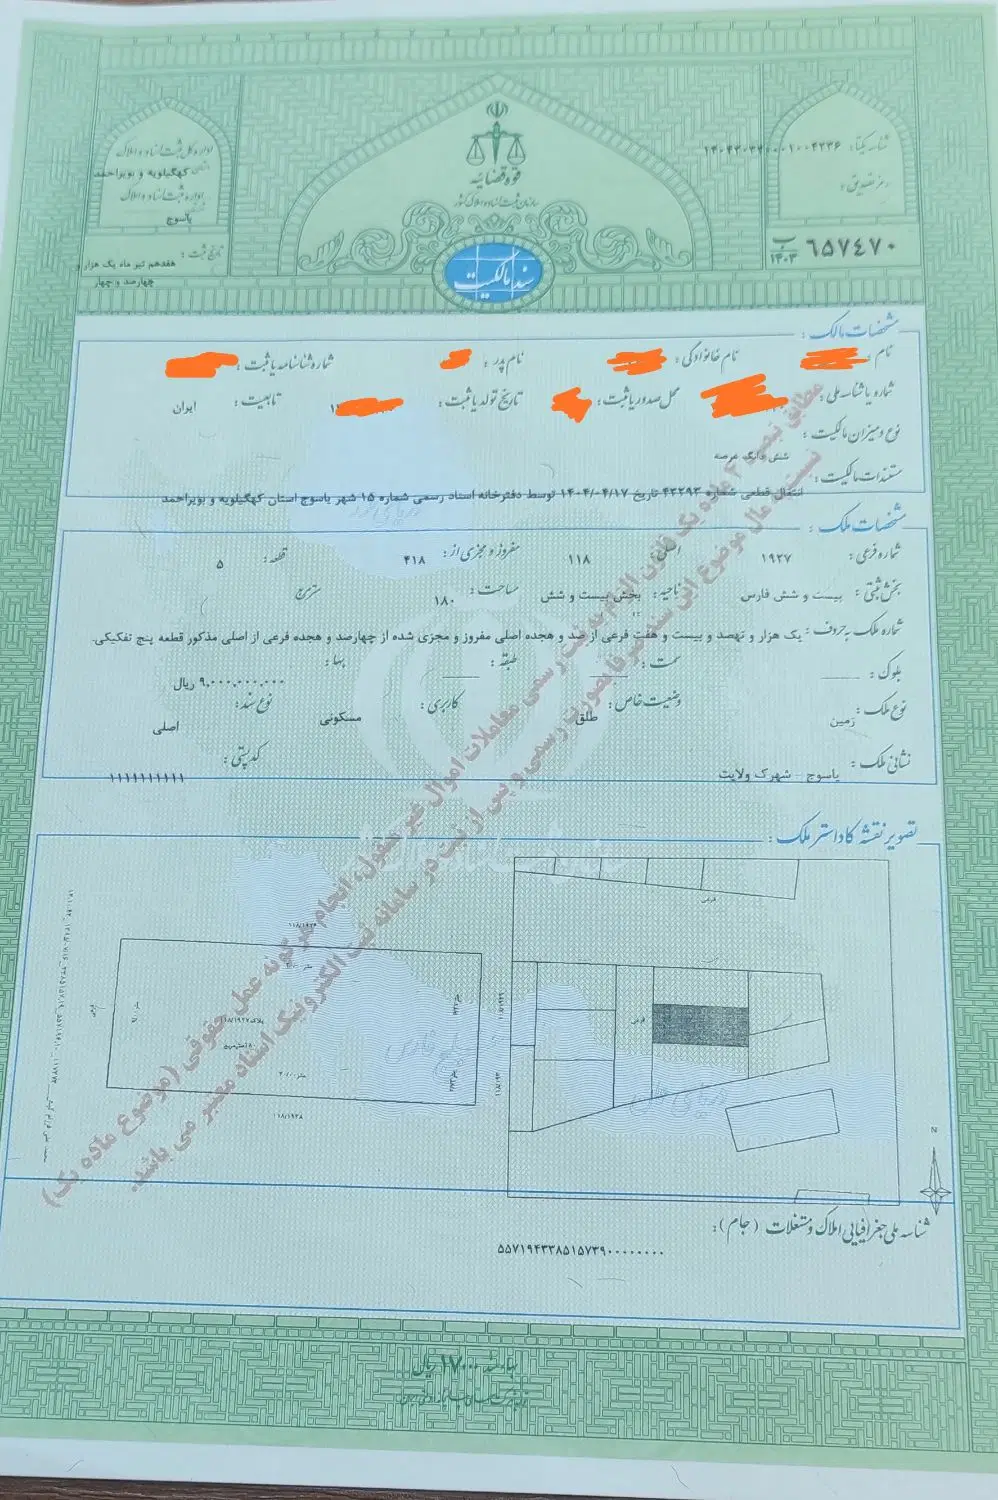 اداره کل ثبت اسناد و املاک
استان کهگیلویه و بویراحمد
اداره ثبت اسناد و املاک
یاسوج
تاریخ ثبت :
هفدهم تیر ماه یک هزار و
چهارصد و چهار
قوه قضائیه
سازمان ثبت اسناد و املاک کشور
سند مالکیت
شناسه یکتا :
رمز تصدیق :
۶۵۷۴۷۰ ب ۱۴۰۳
مشخصات مالک :
نام نام خانوادگی : نام پدر : شماره شناسنامه یا ثبت :
شماره یا شناسه ملی : محل صدور یا ثبت : تاریخ تولد یا ثبت : تابعیت : ایران
نوع و میزان مالکیت :
شش دانگ عرصه
مستندات مالکیت :
انتقال قطعی شماره ۴۲۲۹۳ تاریخ ۱۴۰۴/۰۴/۱۷ توسط دفترخانه اسناد رسمی شماره ۱۵ شهر یاسوج استان کهگیلویه و بویراحمد
مشخصات ملک :
شماره فرعی : ۱۹۲۷ اصلی ۱۱۸ مفروز و مجزی از : ۴۱۸ قطعه : ۵
بخش ثبتی : بیست و شش فارس ناحیه : بخش بیست و شش مساحت : ۱۸۰ متر مربع
شماره ملک به حروف : یک هزار و نهصد و بیست و هفت فرعی از صد و هجده اصلی مفروز و مجزی شده از چهارصد و هجده فرعی از اصلی مذکور قطعه پنج تفکیکی.
بلوک : سمت : طبقه : بهاء : ۹,۰۰۰,۰۰۰,۰۰۰ ریال
نوع ملک : زمین وضعیت خاص : طلق کاربری : مسکونی نوع سند : اصلی
نشانی ملک : یاسوج - شهرک ولایت کد پستی : ۱۱۱۱۱۱۱۱۱۱
مطابق تبصره ۳ ماده یک قانون الزام به ثبت رسمی معاملات اموال غیر منقول، انجام هرگونه عمل حقوقی (موضوع ماده یک)
نسبت به مال موضوع این سند صرفا بصورت رسمی و پس از ثبت در سامانه ثبت الکترونیک اسناد معتبر می باشد.
تصویر نقشه کاداستر ملک :
فرعی
فرعی
پلاک ۱۱۸/۱۹۲۷
۱۱۸/۱۹۲۸
خلیج فارس
دریای عمان
N
شناسه ملی جغرافیایی املاک و مستغلات (جام) :
۵۵۷۱۹۴۳۳۸۵۱۵۷۳۹۰۰۰۰۰۰۰۰
بهاء سند ۱۷۰۰۰ ریال